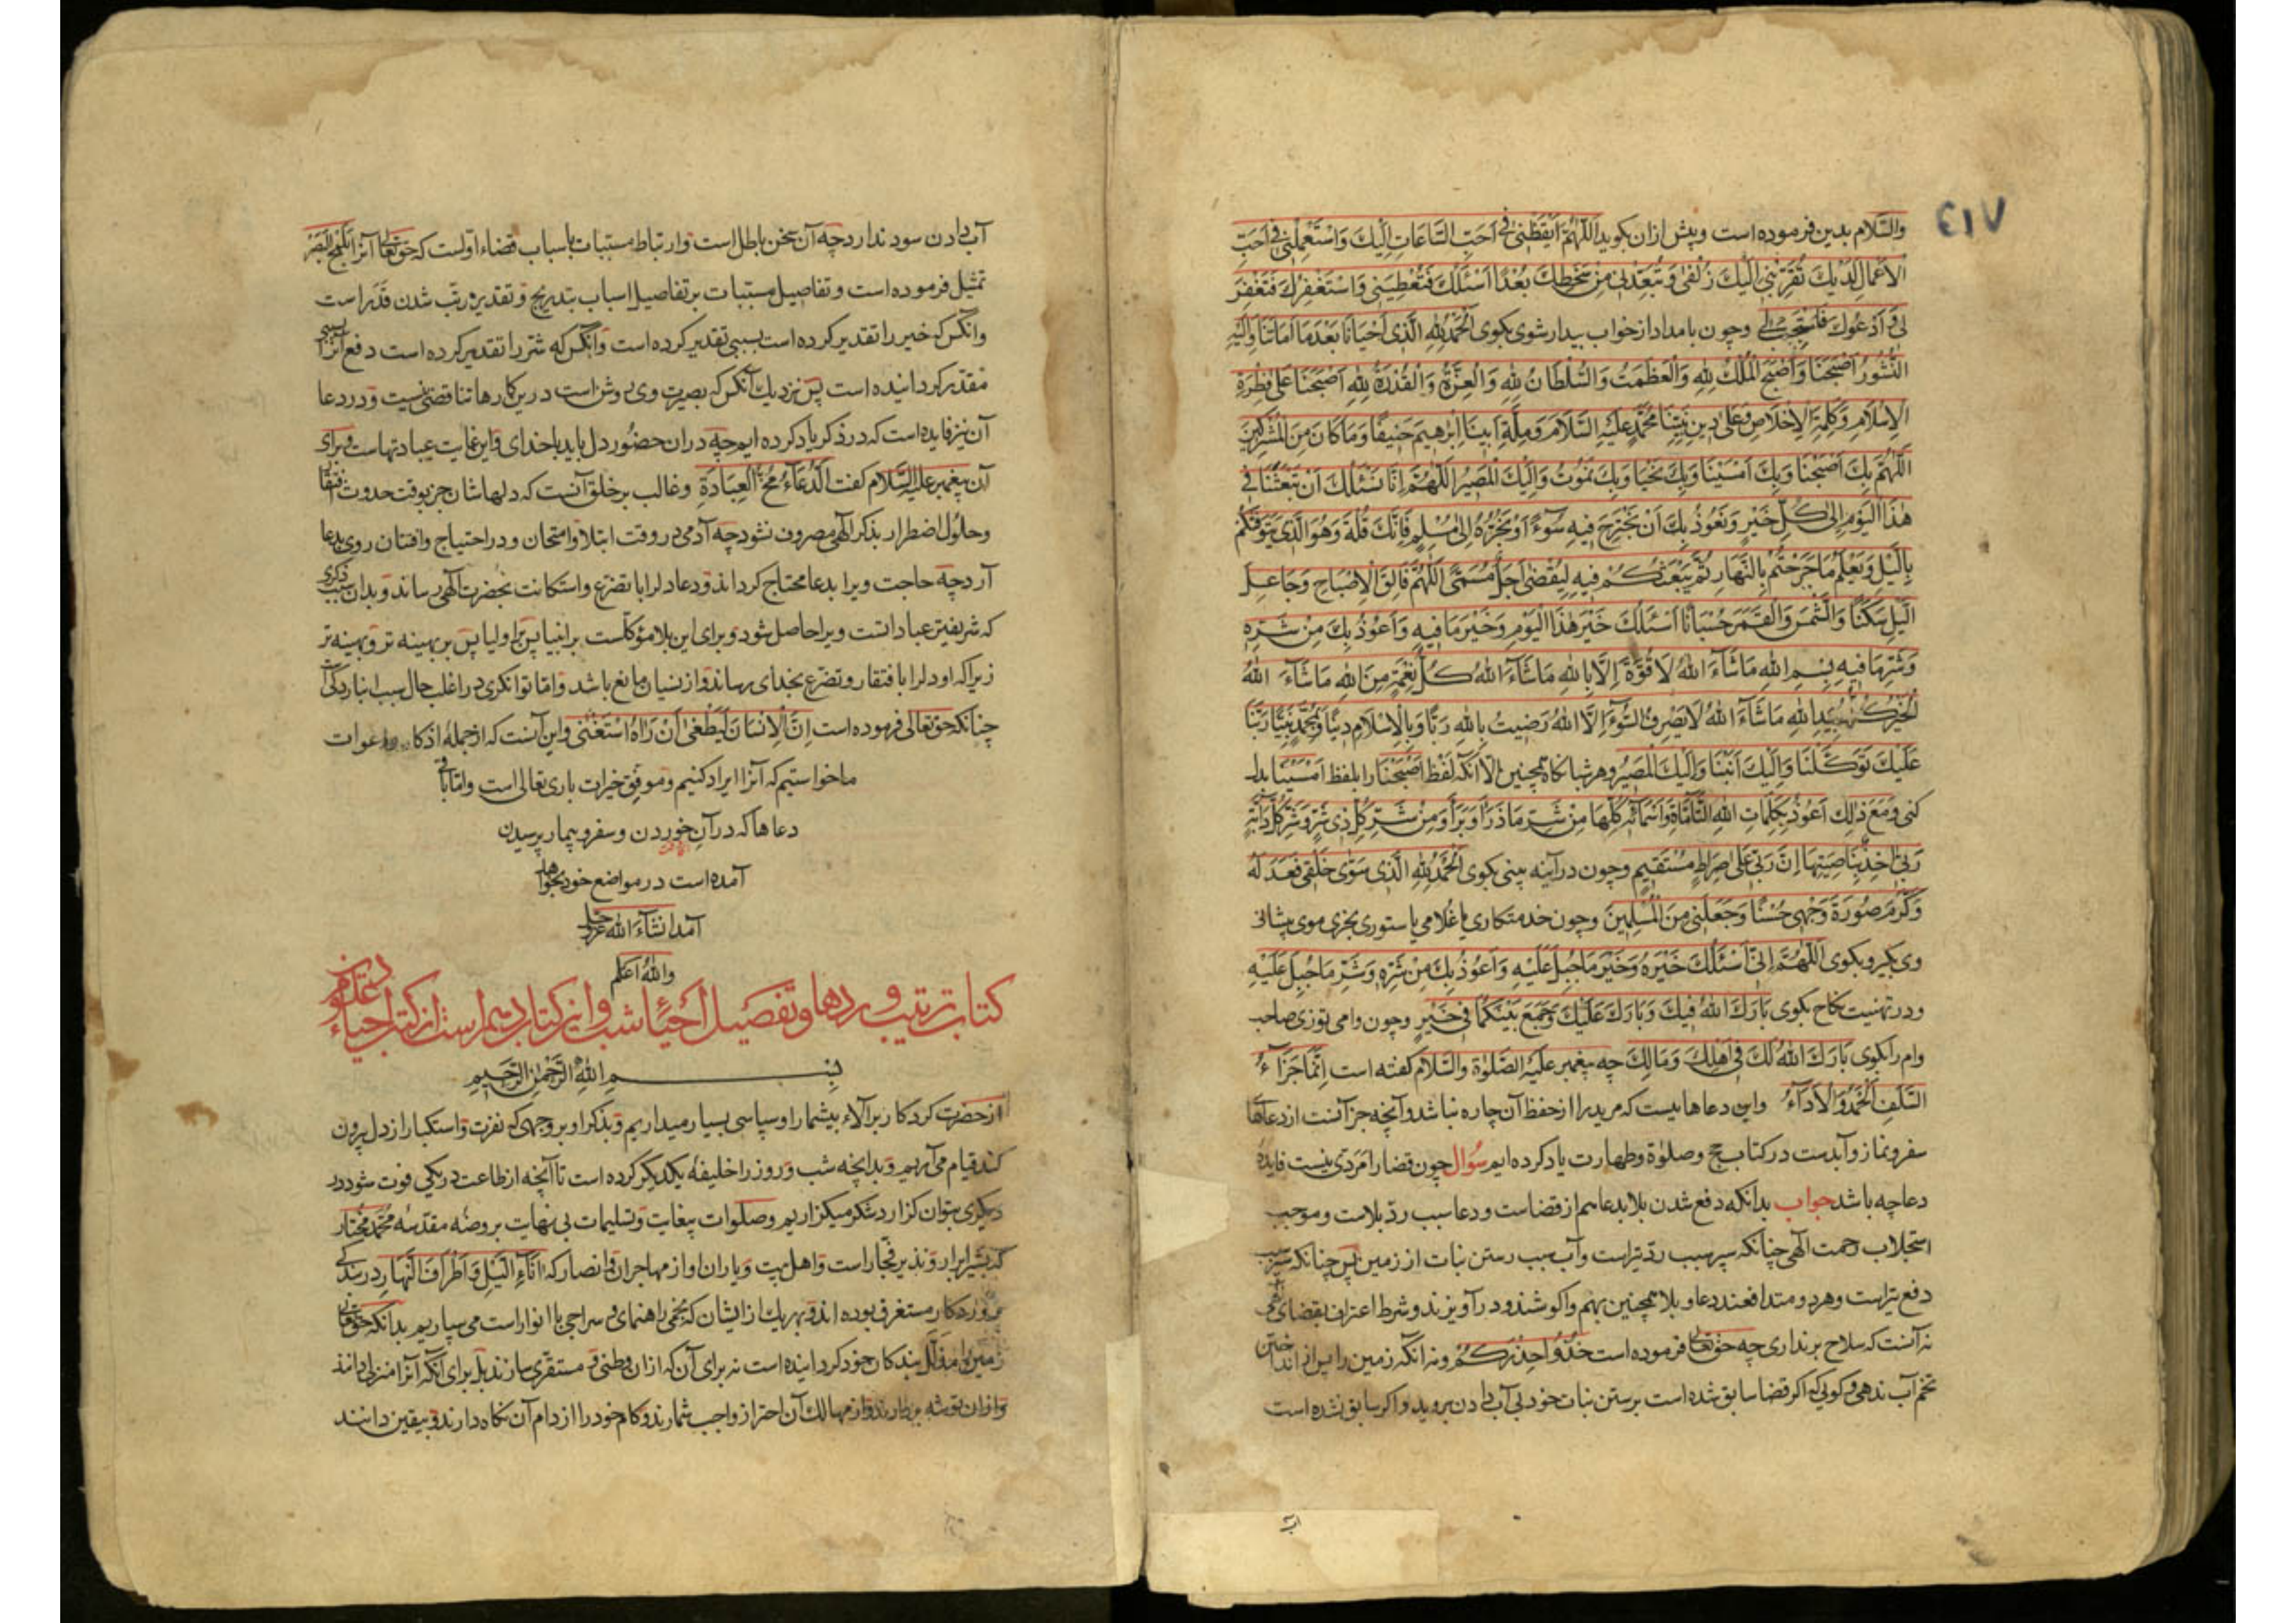 ٤١٧
والسّلام بدین فرموده است وپیش ازان بکوید اَللّٰهُمَّ اَیْقِظْنِیْ فِی اَحَبِّ السَّاعَاتِ اِلَیْكَ وَاسْتَعْمِلْنِیْ فِی اَحَبِّ
الاَعْمَالِ لَدَیْكَ تُقَرِّبُنِی اِلَیْكَ زُلْفٰی وَتُبَعِّدُنِی مِنْ سَخَطِكَ بُعْدًا اَسْئَلُكَ فَتُعْطِیَنِی وَاسْتَغْفِرُكَ فَتَغْفِرَ
لِی وَاَدْعُوكَ فَتَسْتَجِیْبَ لِی وچون بامداد ازخواب بیدار شوی بکوی اَلْحَمْدُ لِلّٰهِ الَّذِی اَحْیَانَا بَعْدَ مَا اَمَاتَنَا وَاِلَیْهِ
النُّشُورُ اَصْبَحْنَا وَاَصْبَحَ الْمُلْكُ لِلّٰهِ وَالْعَظَمَتُ وَالسُّلْطَانُ لِلّٰهِ وَالْعِزَّةُ وَالْقُدْرَةُ لِلّٰهِ اَصْبَحْنَا عَلٰی فِطْرَةِ
الاِسْلَامِ وَکَلِمَةِ الاِخْلَاصِ وَعَلٰی دِینِ نَبِیِّنَا مُحَمَّدٍ عَلَیْهِ السَّلَامُ وَمِلَّةِ اَبِینَا اِبْرٰهِیمَ حَنِیفًا وَمَا کَانَ مِنَ الْمُشْرِکِینَ
اَللّٰهُمَّ بِكَ اَصْبَحْنَا وَبِكَ اَمْسَیْنَا وَبِكَ نَحْیَا وَبِكَ نَمُوتُ وَاِلَیْكَ الْمَصِیرُ اَللّٰهُمَّ اِنَّا نَسْئَلُكَ اَنْ تَبْعَثَنَا فِی
هٰذَا الْیَوْمِ اِلٰی کُلِّ خَیْرٍ وَنَعُوذُ بِكَ اَنْ نَجْتَرِحَ فِیهِ سُوْءً اَوْ نَجُرَّهُ اِلٰی مُسْلِمٍ فَاِنَّكَ قُلْتَ وَهُوَ الَّذِی یَتَوَفّٰکُمْ
بِاللَّیْلِ وَیَعْلَمُ مَا جَرَحْتُمْ بِالنَّهَارِ ثُمَّ یَبْعَثُکُمْ فِیهِ لِیُقْضٰی اَجَلٌ مُسَمًّی اَللّٰهُمَّ فَالِقَ الاِصْبَاحِ وَجَاعِلَ
اللَّیْلِ سَکَنًا وَالشَّمْسَ وَالْقَمَرَ حُسْبَانًا اَسْئَلُكَ خَیْرَ هٰذَا الْیَوْمِ وَخَیْرَ مَا فِیهِ وَاَعُوذُ بِكَ مِنْ شَرِّهِ
وَشَرِّ مَا فِیهِ بِسْمِ اللهِ مَا شَآءَ اللهُ لَا قُوَّةَ اِلَّا بِاللهِ مَا شَآءَ اللهُ کُلُّ نِعْمَةٍ مِنَ اللهِ مَا شَآءَ اللهُ
الْخَیْرُ کُلُّهُ بِیَدِ اللهِ مَا شَآءَ اللهُ لَا یَصْرِفُ السُّوْءَ اِلَّا اللهُ رَضِیتُ بِاللهِ رَبًّا وَبِالاِسْلَامِ دِینًا وَبِمُحَمَّدٍ نَبِیًّا رَبَّنَا
عَلَیْكَ تَوَکَّلْنَا وَاِلَیْكَ اَنَبْنَا وَاِلَیْكَ الْمَصِیرُ وهر شبانکاه همچنین الا آنکه لفظ اَصْبَحْنَا را بلفظ اَمْسَیْنَا بدل
کنی وَمَعَ ذٰلِكَ اَعُوذُ بِکَلِمَاتِ اللهِ التَّامَّاتِ وَاَسْمَائِهِ کُلِّهَا مِنْ شَرِّ مَا ذَرَاَ وَبَرَاَ وَمِنْ شَرِّ کُلِّ ذِی شَرٍّ وَشَرِّ کُلِّ دَابَّةٍ
رَبِّی اٰخِذٌ بِنَاصِیَتِهَا اِنَّ رَبِّی عَلٰی صِرَاطٍ مُسْتَقِیمٍ وچون در آینه بینی بکوی اَلْحَمْدُ لِلّٰهِ الَّذِی سَوّٰی خَلْقِی فَعَدَلَهُ
وَکَرَّمَ صُورَةَ وَجْهِی حُسْنًا وَجَعَلَنِی مِنَ الْمُسْلِمِینَ وچون خدمتکاری یا غلامی یا ستوری بخری موی پیشانی
وی بکیر وبکوی اَللّٰهُمَّ اِنِّی اَسْئَلُكَ خَیْرَهُ وَخَیْرَ مَا جُبِلَ عَلَیْهِ وَاَعُوذُ بِكَ مِنْ شَرِّهِ وَشَرِّ مَا جُبِلَ عَلَیْهِ
ودر تهنیت نکاح بکوی بَارَكَ اللهُ فِیكَ وَبَارَكَ عَلَیْكَ وَجَمَعَ بَیْنَکُمَا فِی خَیْرٍ وچون وامی توزی صاحب
وام را بکوی بَارَكَ اللهُ لَكَ فِی اَهْلِكَ وَمَالِكَ چه پیغمبر علیه الصّلوٰة والسّلام کفته است اِنَّمَا جَزَآءُ
السَّلَفِ اَلْحَمْدُ وَالاَدَآءُ واین دعاهاییست که مریدرا از حفظ آن چاره نباشد وآنچه جز آنست از دعاهاء
سفر ونماز وآبدست در کتاب حج وصلوٰة وطهارت یاد کرده ایم سُوال چون قضارا مَرَدّی نیست فایدهٔ
دعا چه باشد جواب بدانکه دفع شدن بلا بدعا هم از قضاست ودعا سبب ردّ بلاست وموجب
استجلاب رحمت الٓهی چنانکه سپر سبب ردّ تیراست وآب سبب رستن نبات از زمین پس چنانکه سپر سبب
دفع تیراست وهر دو متدافعند دعا وبلا همچنین بهم واکوشند ودرآویزند وشرط اعتراف بقضای
نه آنست که سلاح برنداری چه حق تعالی فرموده است خُذُوا حِذْرَکُمْ ونه آنکه زمین را پس از انداختن
تخم آب ندهی وکویی که اکر قضا سابق شده است برستن نبات خود بی آب دادن بروید واکر سابق نشده است
آب دادن سود ندارد چه آن سخن باطل است وارتباط مسببات باسباب قضاء اوّلست که حق تعالی آنرا بکلمح البصر
تمثیل فرموده است وتفاصیل مسببات برتفاصیل اسباب بتدریج وتقدیر مرتّب شدن قَدَراست
وآنکس که خیر را تقدیر کرده است بسببی تقدیر کرده است وآنکس که شرّ را تقدیر کرده است دفع آنرا سببی
مقدّر کردانیده است پس نزدیك آنکس که بصیرت وی روشن است درین کارها تناقضی نیست ودر دعا
آن نیز فایده است که در ذکر یاد کرده ایم چه دران حضور دل باید باخدای واین غایت عبادتهاست وبرای
آن پیغمبر علیه السّلام کفت اَلدُّعَآءُ مُخُّ الْعِبَادَةِ وغالب بر خلق آنست که دلهاشان جز بوقت حدوث افتقار
وحلول اضطرار بذکر الٓهی مصروف نشود چه آدمی در وقت ابتلا وامتحان ودر احتیاج وافتان روی بدعا
آرد چه حاجت ویرا بدعا محتاج کرداند ودعا دلرا با تضرّع واستکانت بحضرت الٓهی رساند وبدان سبب ذکری
که شریفترین عباداتست ویرا حاصل شود وبرای این بلا مؤکّلست بر انبیا پس بر اولیا پس بر بهینه تر وبهینه تر
زیرا که او دلرا با افتقار وتضرّع بخدای رساند واز نسیان مانع باشد واما توانکری در اغلب حال سبب انباردکی است
چنانکه حق تعالی فرموده است اِنَّ الاِنْسَانَ لَیَطْغٰی اَنْ رَاٰهُ اسْتَغْنٰی واین آنست که از جملهٔ اذکار ودعوات
ما خواستیم که آنرا ایراد کنیم وموفّق خیرات باری تعالی است واما باقی
دعاها که در آن خوردن وسفر وبیمار پرسیدن
آمده است در مواضع خود بخواهد
آمد انشآء الله عزّ وجلّ
والله اعلم
کتاب ترتیب وردها وتفصیل احیاء شب واین کتاب دهم است از کتب احیاء علوم دین
بسم الله الرّحمٰن الرّحیم
از حضرت کردکار را برآلاء بیشمار او سپاسی بسیار میداریم وبذکر او بر وجهی که نفرت واستکبار از دل بیرون
کند قیام می آریم وبدانچه شب وروز را خلیفهٔ یکدیکر کرده است تا آنچه از طاعت در یکی فوت شود در
دیکری بتوان کزارد شکر میکزاریم وصلوات بیغایت وتسلیمات بی نهایت بر روضهٔ مقدسهٔ محمّد مختار
که بشیر ابرار ونذیر فجّار است واهل بیت ویاران او از مهاجران وانصار که اٰنَآءَ اللَّیْلِ وَاَطْرَافَ النَّهَارِ در بندکی
پروردکار مستغرق بوده اند وبهر یك از ایشان که نجمی راهنمای وسراجی با انوار است می سپاریم بدانکه حق تعالی
زمین را مذلّل بندکان خود کردانیده است نه برای آن که ازان وطنی ومستقرّی سازند بل برای آنکه آنرا منزلی دانند
وازان توشه بردارند واز مهالك آن احتراز واجب شمارند وکام خود را از دام آن نکاه دارند وبیقین دانند